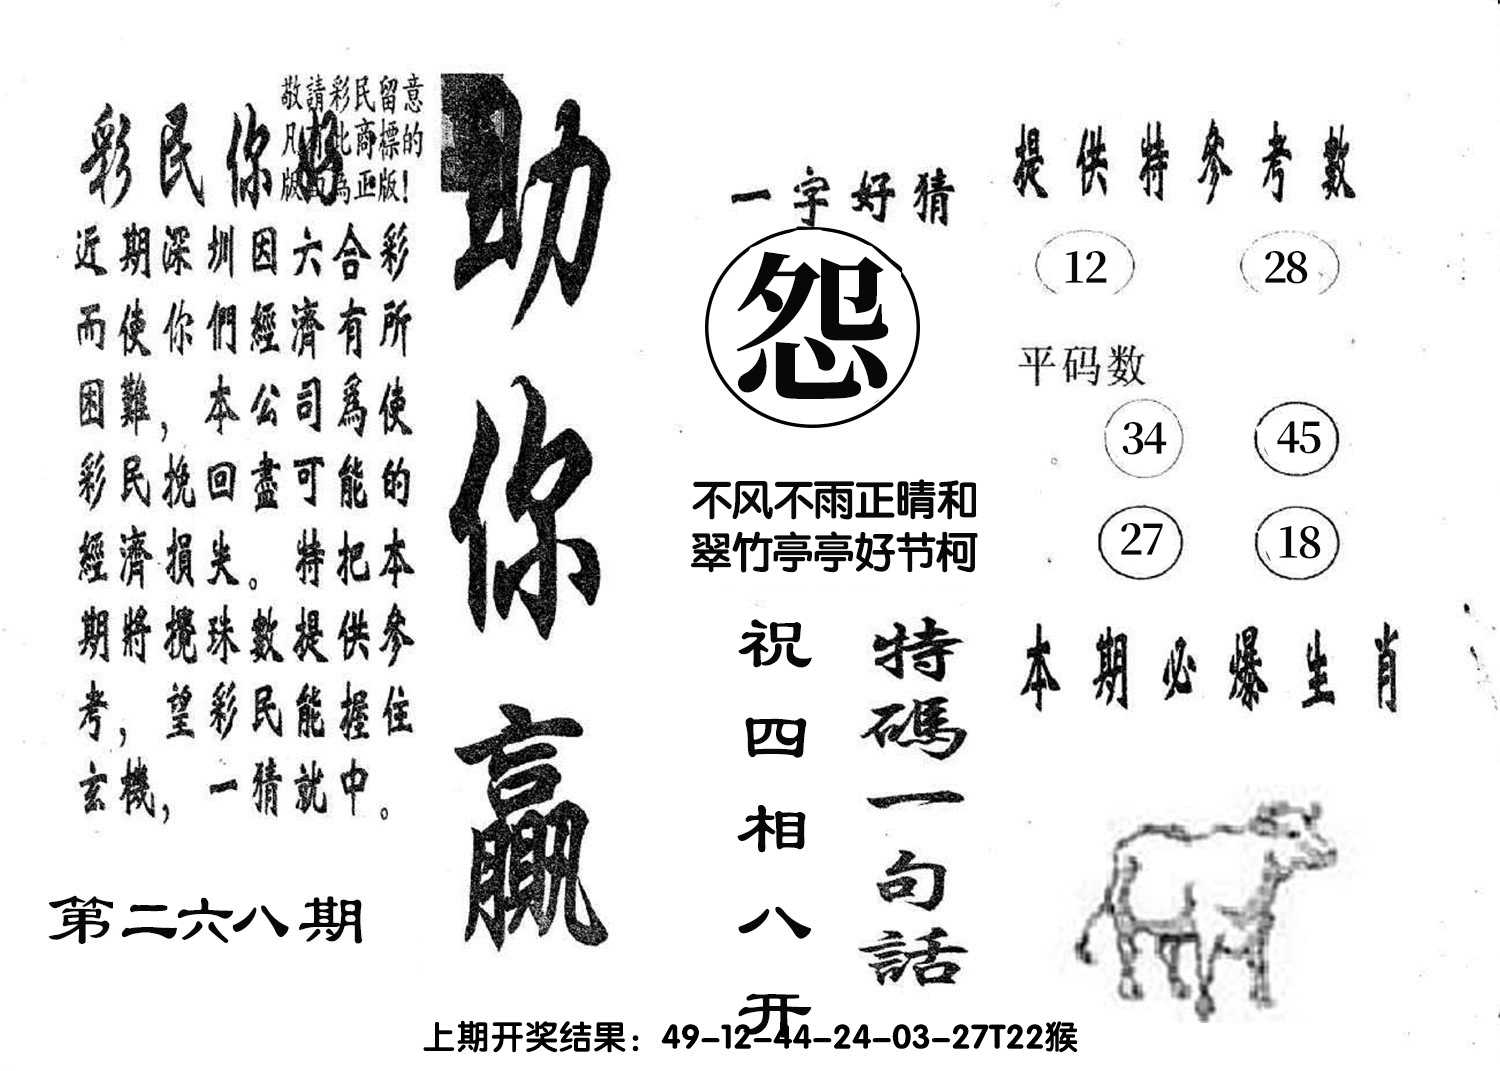 敬請彩民留意
凡有此商標的
版面為正版!
彩民你好
近期深圳因六合彩
而使你們經濟有所
困難，本公司爲使
彩民挽回盡可能的
經濟損失。特把本
期將攪珠數提供參
考，望彩民能握住
玄機，一猜就中。
第二六八期
助你贏
一字好猜
怨
不风不雨正晴和
翠竹亭亭好节柯
特碼一句話
祝四相八开
提供特參考數
12 28
平码数
34 45
27 18
本期必爆生肖
上期开奖结果：49-12-44-24-03-27T22猴